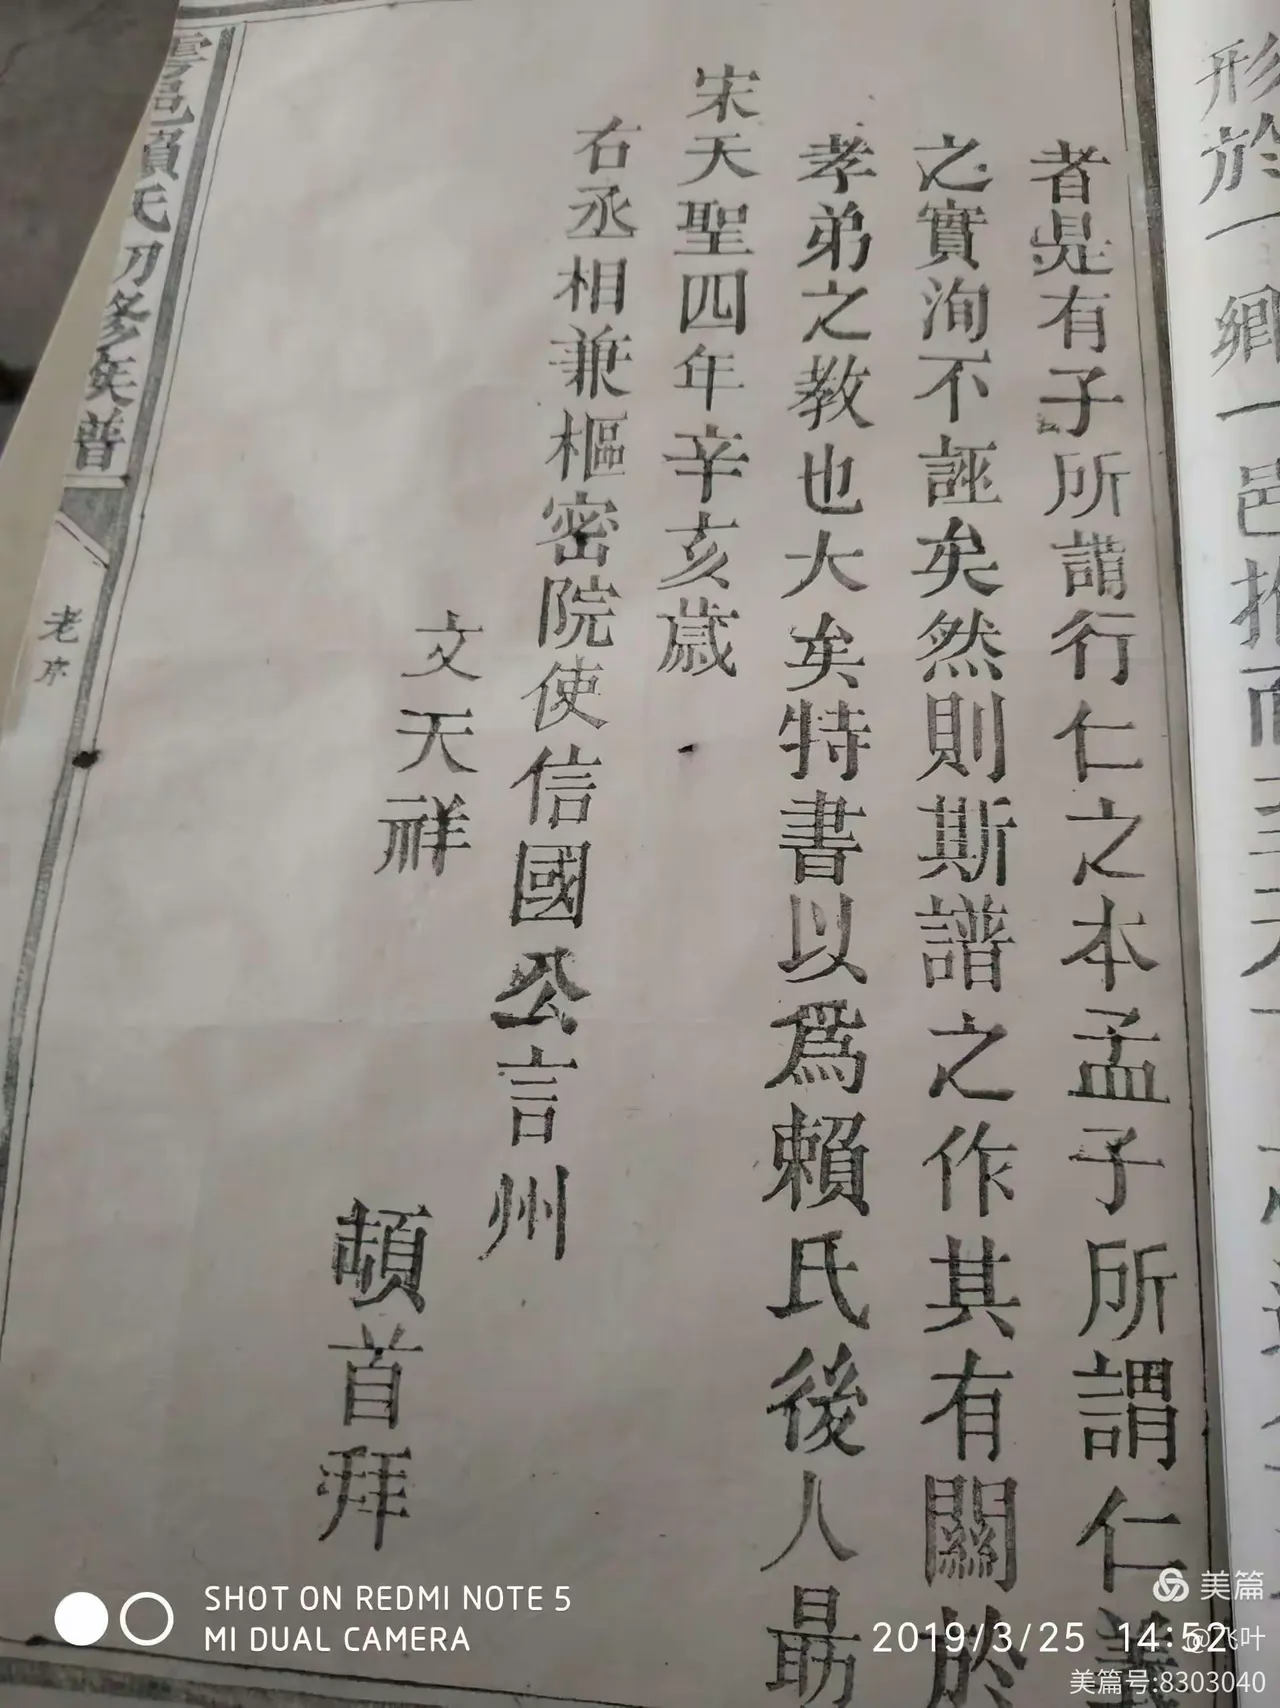 形於一鄉一邑推而
者是有子所謂行仁之本孟子所謂仁義
之實洵不誣矣然則斯譜之作其有關於
孝弟之教也大矣特書以爲賴氏後人勗
宋天聖四年辛亥歲
右丞相兼樞密院使信國公言州
文天祥
頓首拜
雩邑賴氏初修族譜
老序
SHOT ON REDMI NOTE 5
MI DUAL CAMERA
美篇
2019/3/25 14:52
@飞叶
美篇号:8303040